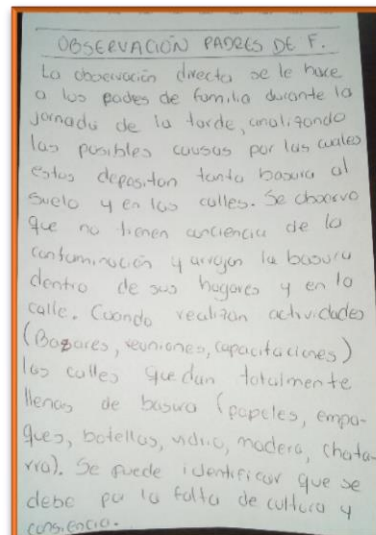 OBSERVACIÓN PADRES DE F.
La observación directa se le hace
a los padres de familia durante la
jornada de la tarde, analizando
las posibles causas por las cuales
estos depositan tanta basura al
suelo y en las calles. Se observo
que no tienen conciencia de la
contaminación y arrojan la basura
dentro de sus hogares y en la
calle. Cuando realizan actividades
(Bazares, reuniones, capacitaciones)
las calles quedan totalmente
llenas de basura (papeles, empa-
ques, botellas, vidrio, madera, chata-
rra). Se puede identificar que se
debe por la falta de cultura y
consiencia.